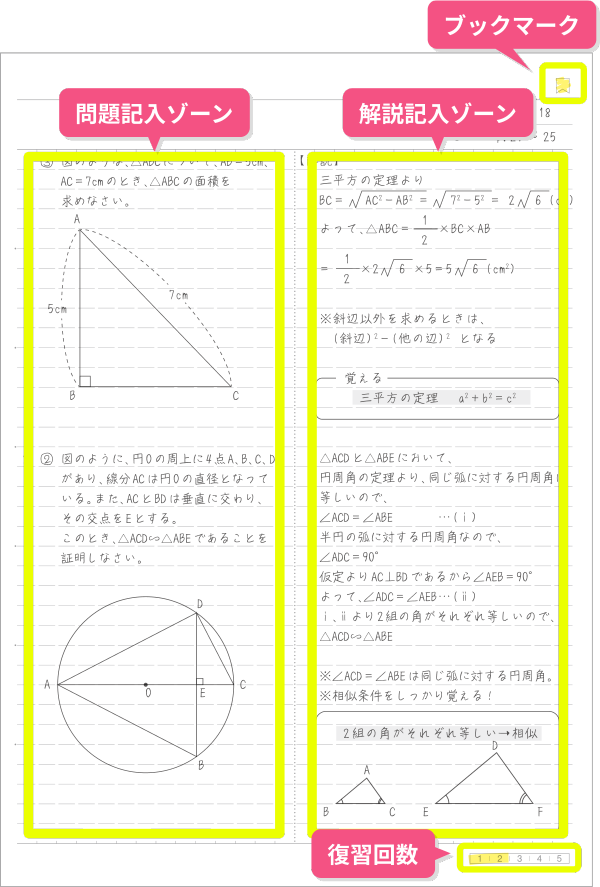 ブックマーク
問題記入ゾーン
解説記入ゾーン
18
25
AC=7cmのとき、△ABCの面積を
求めなさい。
A
5cm
7cm
B
C
② 図のように、円Oの周上に4点A、B、C、D
があり、線分ACは円Oの直径となって
いる。また、ACとBDは垂直に交わり、
その交点をEとする。
このとき、△ACD∽△ABEであることを
証明しなさい。
D
A
O
E
C
B
三平方の定理より
BC=√AC²-AB²=√7²-5²= 2√6
よって、△ABC=1/2×BC×AB
=1/2×2√6×5=5√6(cm²)
※斜辺以外を求めるときは、
(斜辺)²-(他の辺)² となる
覚える
三平方の定理 a²+b²=c²
△ACDと△ABEにおいて、
円周角の定理より、同じ弧に対する円周角
等しいので、
∠ACD=∠ABE …(ⅰ)
半円の弧に対する円周角なので、
∠ADC=90°
仮定よりAC⊥BDであるから∠AEB=90°
よって、∠ADC=∠AEB…(ⅱ)
ⅰ、ⅱより2組の角がそれぞれ等しいので、
△ACD∽△ABE
※∠ACD=∠ABEは同じ弧に対する円周角。
※相似条件をしっかり覚える!
2組の角がそれぞれ等しい→相似
A
B
C
D
E
F
復習回数
1 2 3 4 5